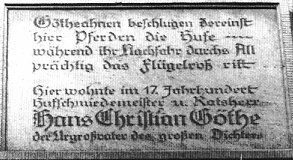 Götheahnen beschlugen dereinst
hier Pferden die Hufe
während ihr Nachfahr durchs All
prächtig das Flügelroß ritt
Hier wohnte im 17. Jahrhundert
Hufschmiedemeister u. Ratsherr
Hans Christian Göthe
der Urgroßvater des großen Dichters